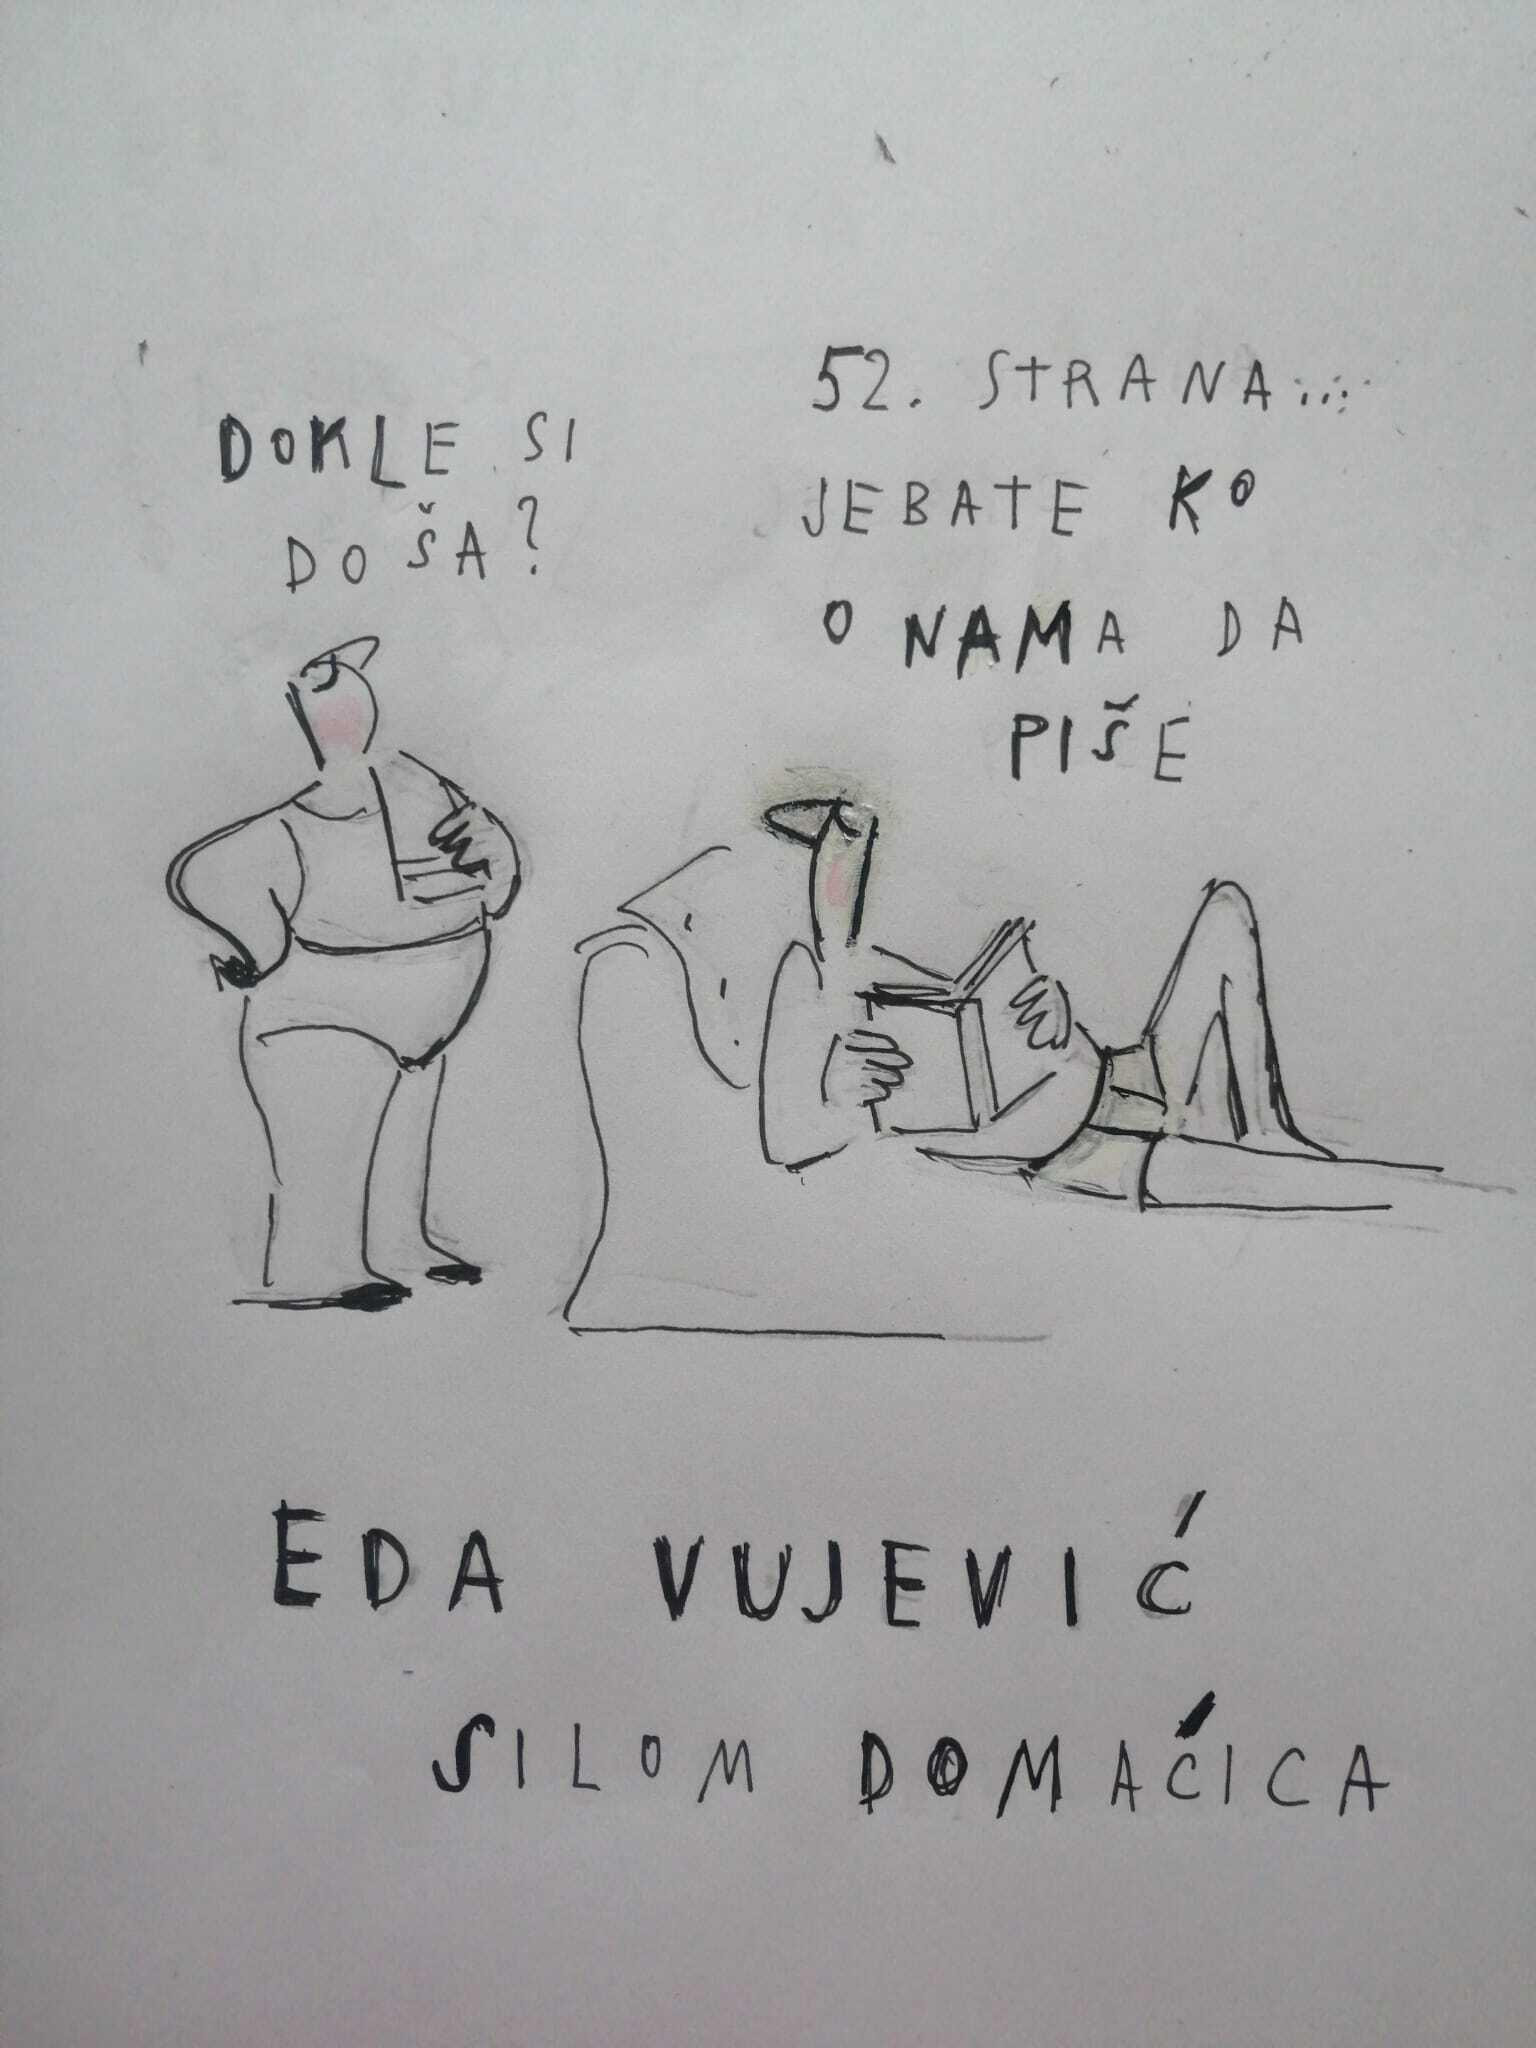 DOKLE SI
DOŠA?
52. STRANA...
JEBATE KO
O NAMA DA
PIŠE
EDA VUJEVIĆ
SILOM DOMAĆICA